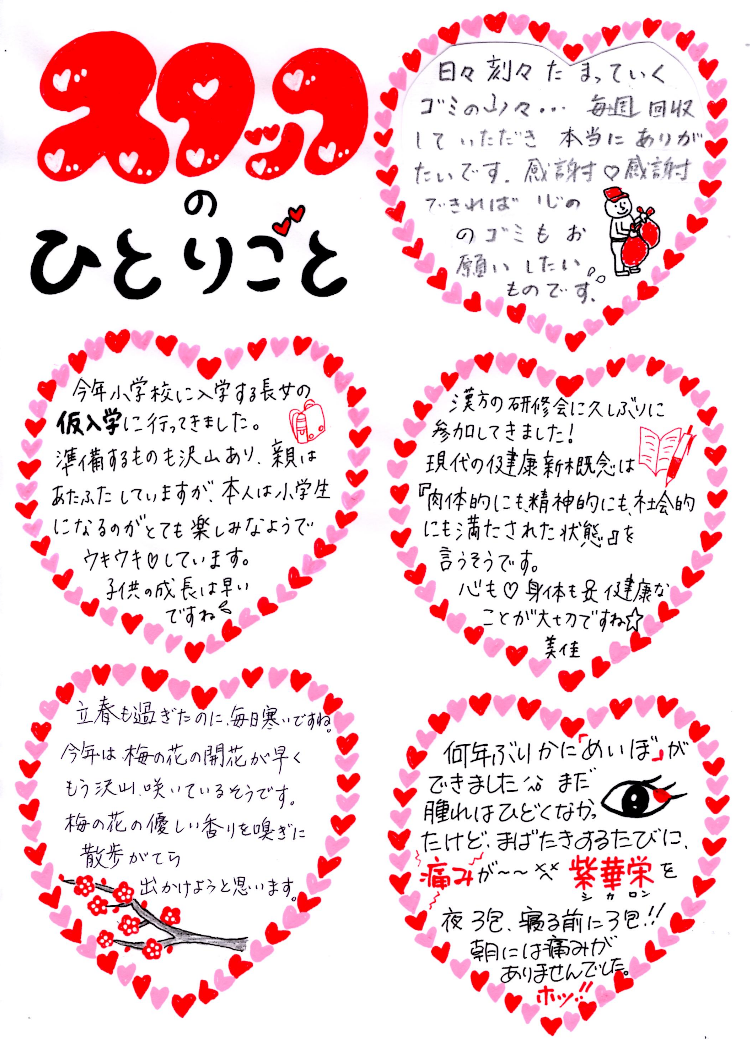 スタッフ
の
ひとりごと
日々刻々たまっていく
ゴミの山々… 毎週回収
していただき 本当にありが
たいです。感謝♡感謝
できれば 心の
のゴミもお
願いしたい
ものです。
今年小学校に入学する長女の
仮入学に行ってきました。
準備するものも沢山あり、親は
あたふたしていますが、本人は小学生
になるのがとても楽しみなようで
ウキウキ♡しています。
子供の成長は早い
ですね
漢方の研修会に久しぶりに
参加してきました!
現代の健康新概念は
『肉体的にも、精神的にも、社会的
にも満たされた状態』を
言うそうです。
心も♡身体も健康な
ことが大切ですね☆
美佳
立春も過ぎたのに、毎日寒いですね。
今年は、梅の花の開花が早く
もう沢山、咲いているそうです。
梅の花の優しい香りを嗅ぎに
散歩がてら
出かけようと思います。
何年ぶりかに「めいぼ」が
できました まだ
腫れはひどくなかっ
たけど、まばたきするたびに、
痛みが~~ 紫華栄を
シカロン
夜3包、寝る前に3包!!
朝には痛みが
ありませんでした。
ホッ!!